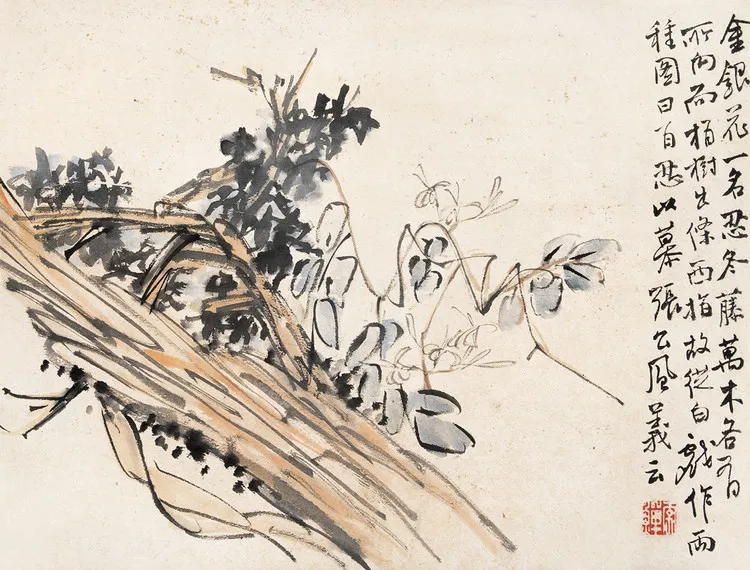 金銀花一名忍冬藤萬木各有
所向而栢樹生條西指故從白戲作兩
種圖曰百忍以慕張公風義云